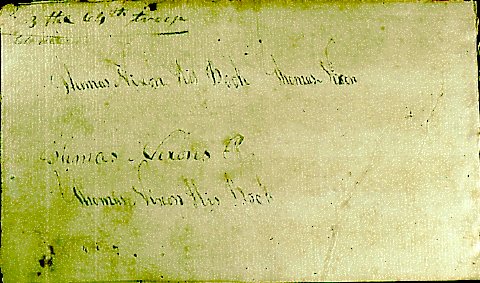 3 the 64th troop
Thomas Nixon His Book Thomas Nixon
Thomas Nixons B
Thomas Nixon His Book